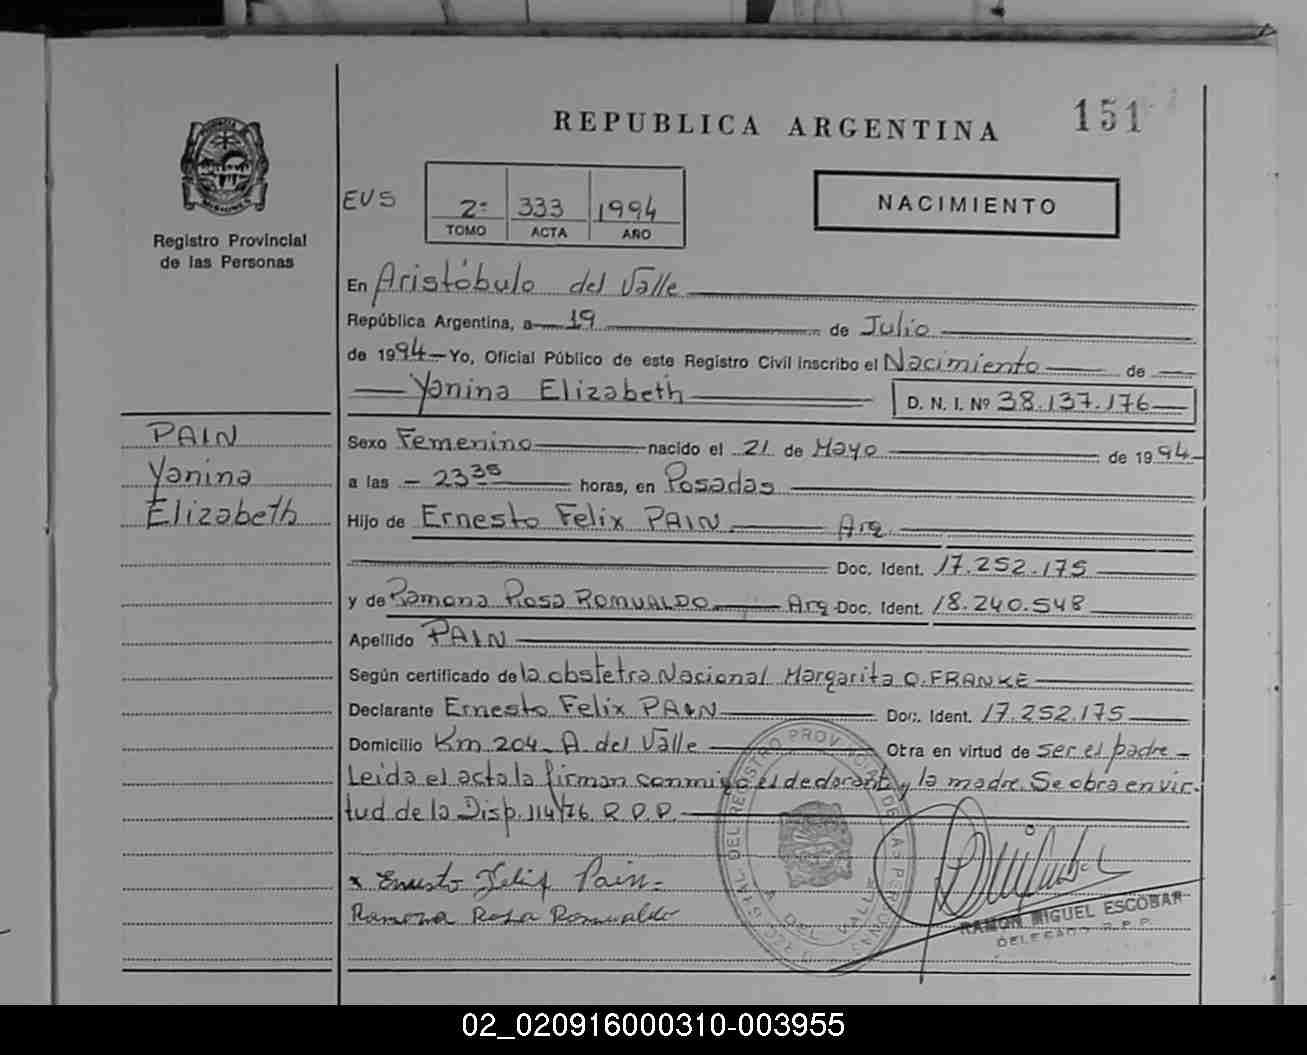 REPUBLICA ARGENTINA
151
Registro Provincial
de las Personas
EVS
2º 333 1994
TOMO ACTA AÑO
NACIMIENTO
En Aristóbulo del Valle
República Argentina, a 19 de Julio
de 1994 Yo, Oficial Público de este Registro Civil inscribo el Nacimiento de
Yanina Elizabeth D. N. I. Nº 38.137.176
PAIN
Yanina
Elizabeth
Sexo Femenino nacido el 21 de Mayo de 1994
a las 23 35 horas, en Posadas
Hijo de Ernesto Felix PAIN Arg.
Doc. Ident. 17.252.175
y de Ramona Rosa ROMUALDO Arg Doc. Ident. 18.240.548
Apellido PAIN
Según certificado de la obstetra Nacional Margarita O. FRANKE
Declarante Ernesto Felix PAIN Doc. Ident. 17.252.175
Domicilio Km 204 A. del Valle Otra en virtud de ser el padre
Leida el acta la firman conmigo el declarante y la madre. Se obra en vir-
tud de la Disp. 114/76 R.P.P.
x Ernesto Felix Pain
Ramona Rosa Romualdo
RAMON MIGUEL ESCOBAR
DELEGADO R.P.P.
02_020916000310-003955